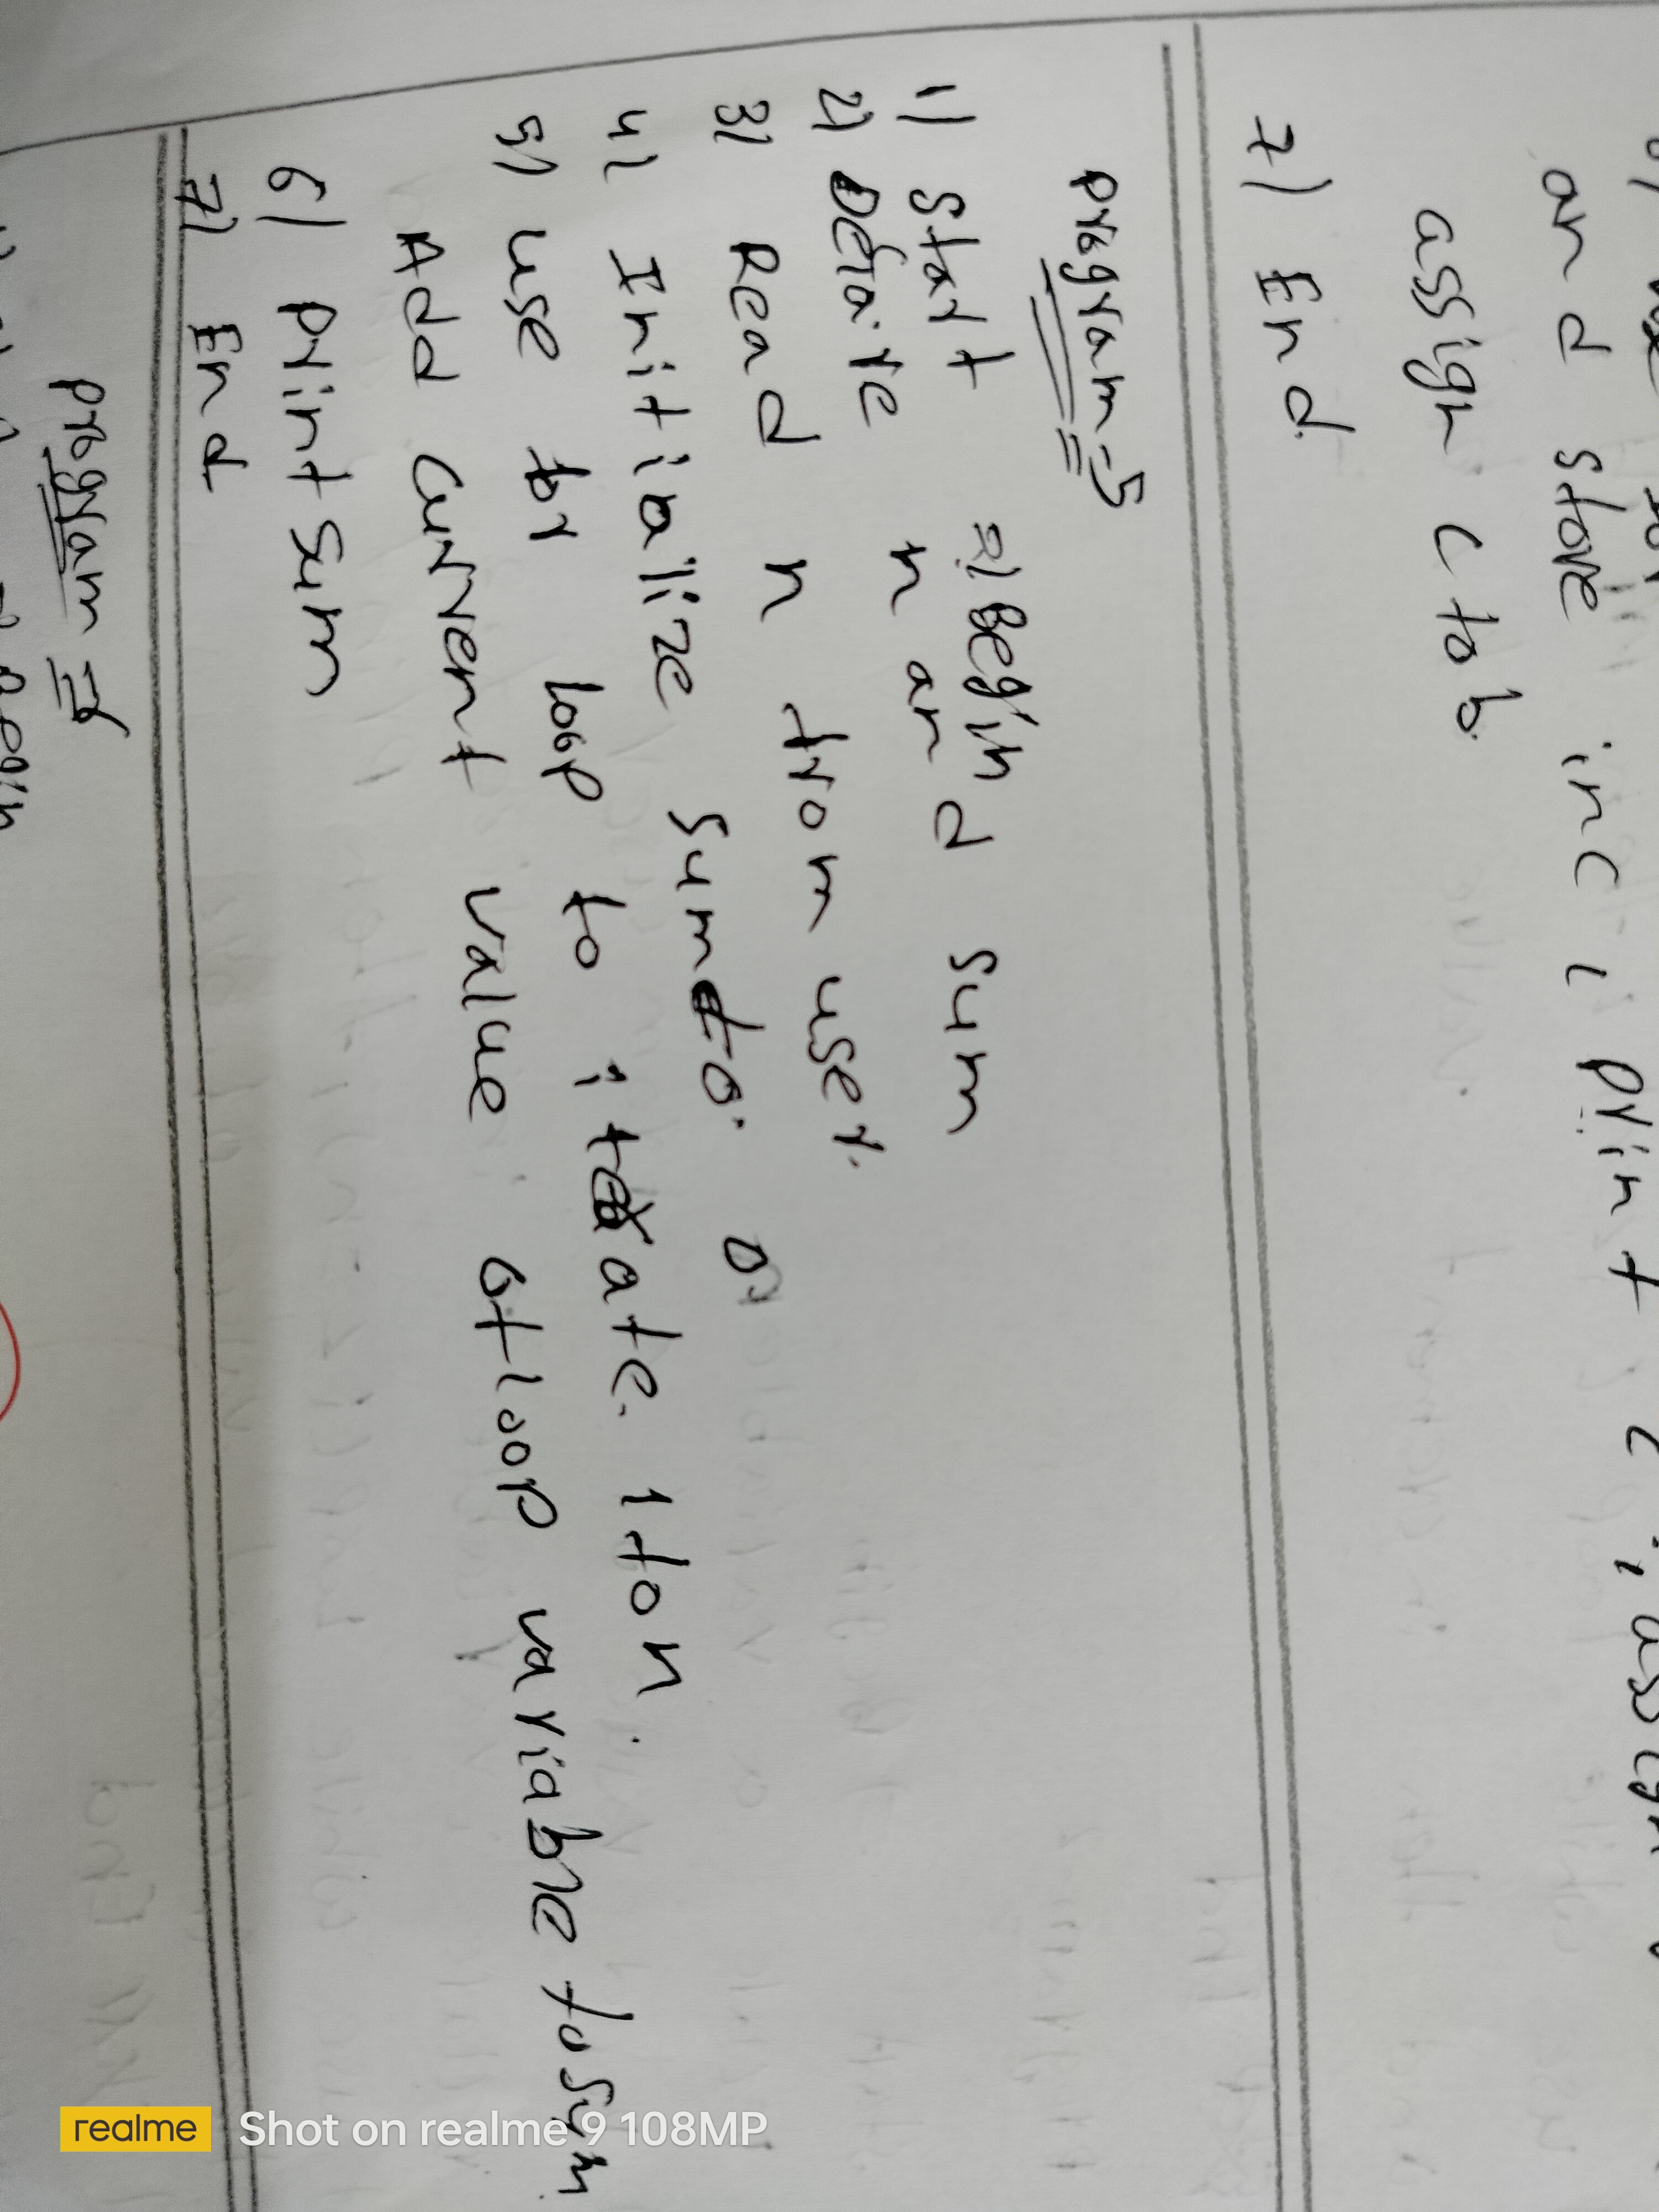 and store in c, print c, assign
assign c to b
7) End
program-5
1) Start =) Begin
2) Declare n and sum
3) Read n from user.
4) Initialize sum to 0
5) use for loop to iterate 1 to n.
Add current value of loop variable to sum
6) print sum
7) End
program = 6
Begin
realme Shot on realme 9 108MP